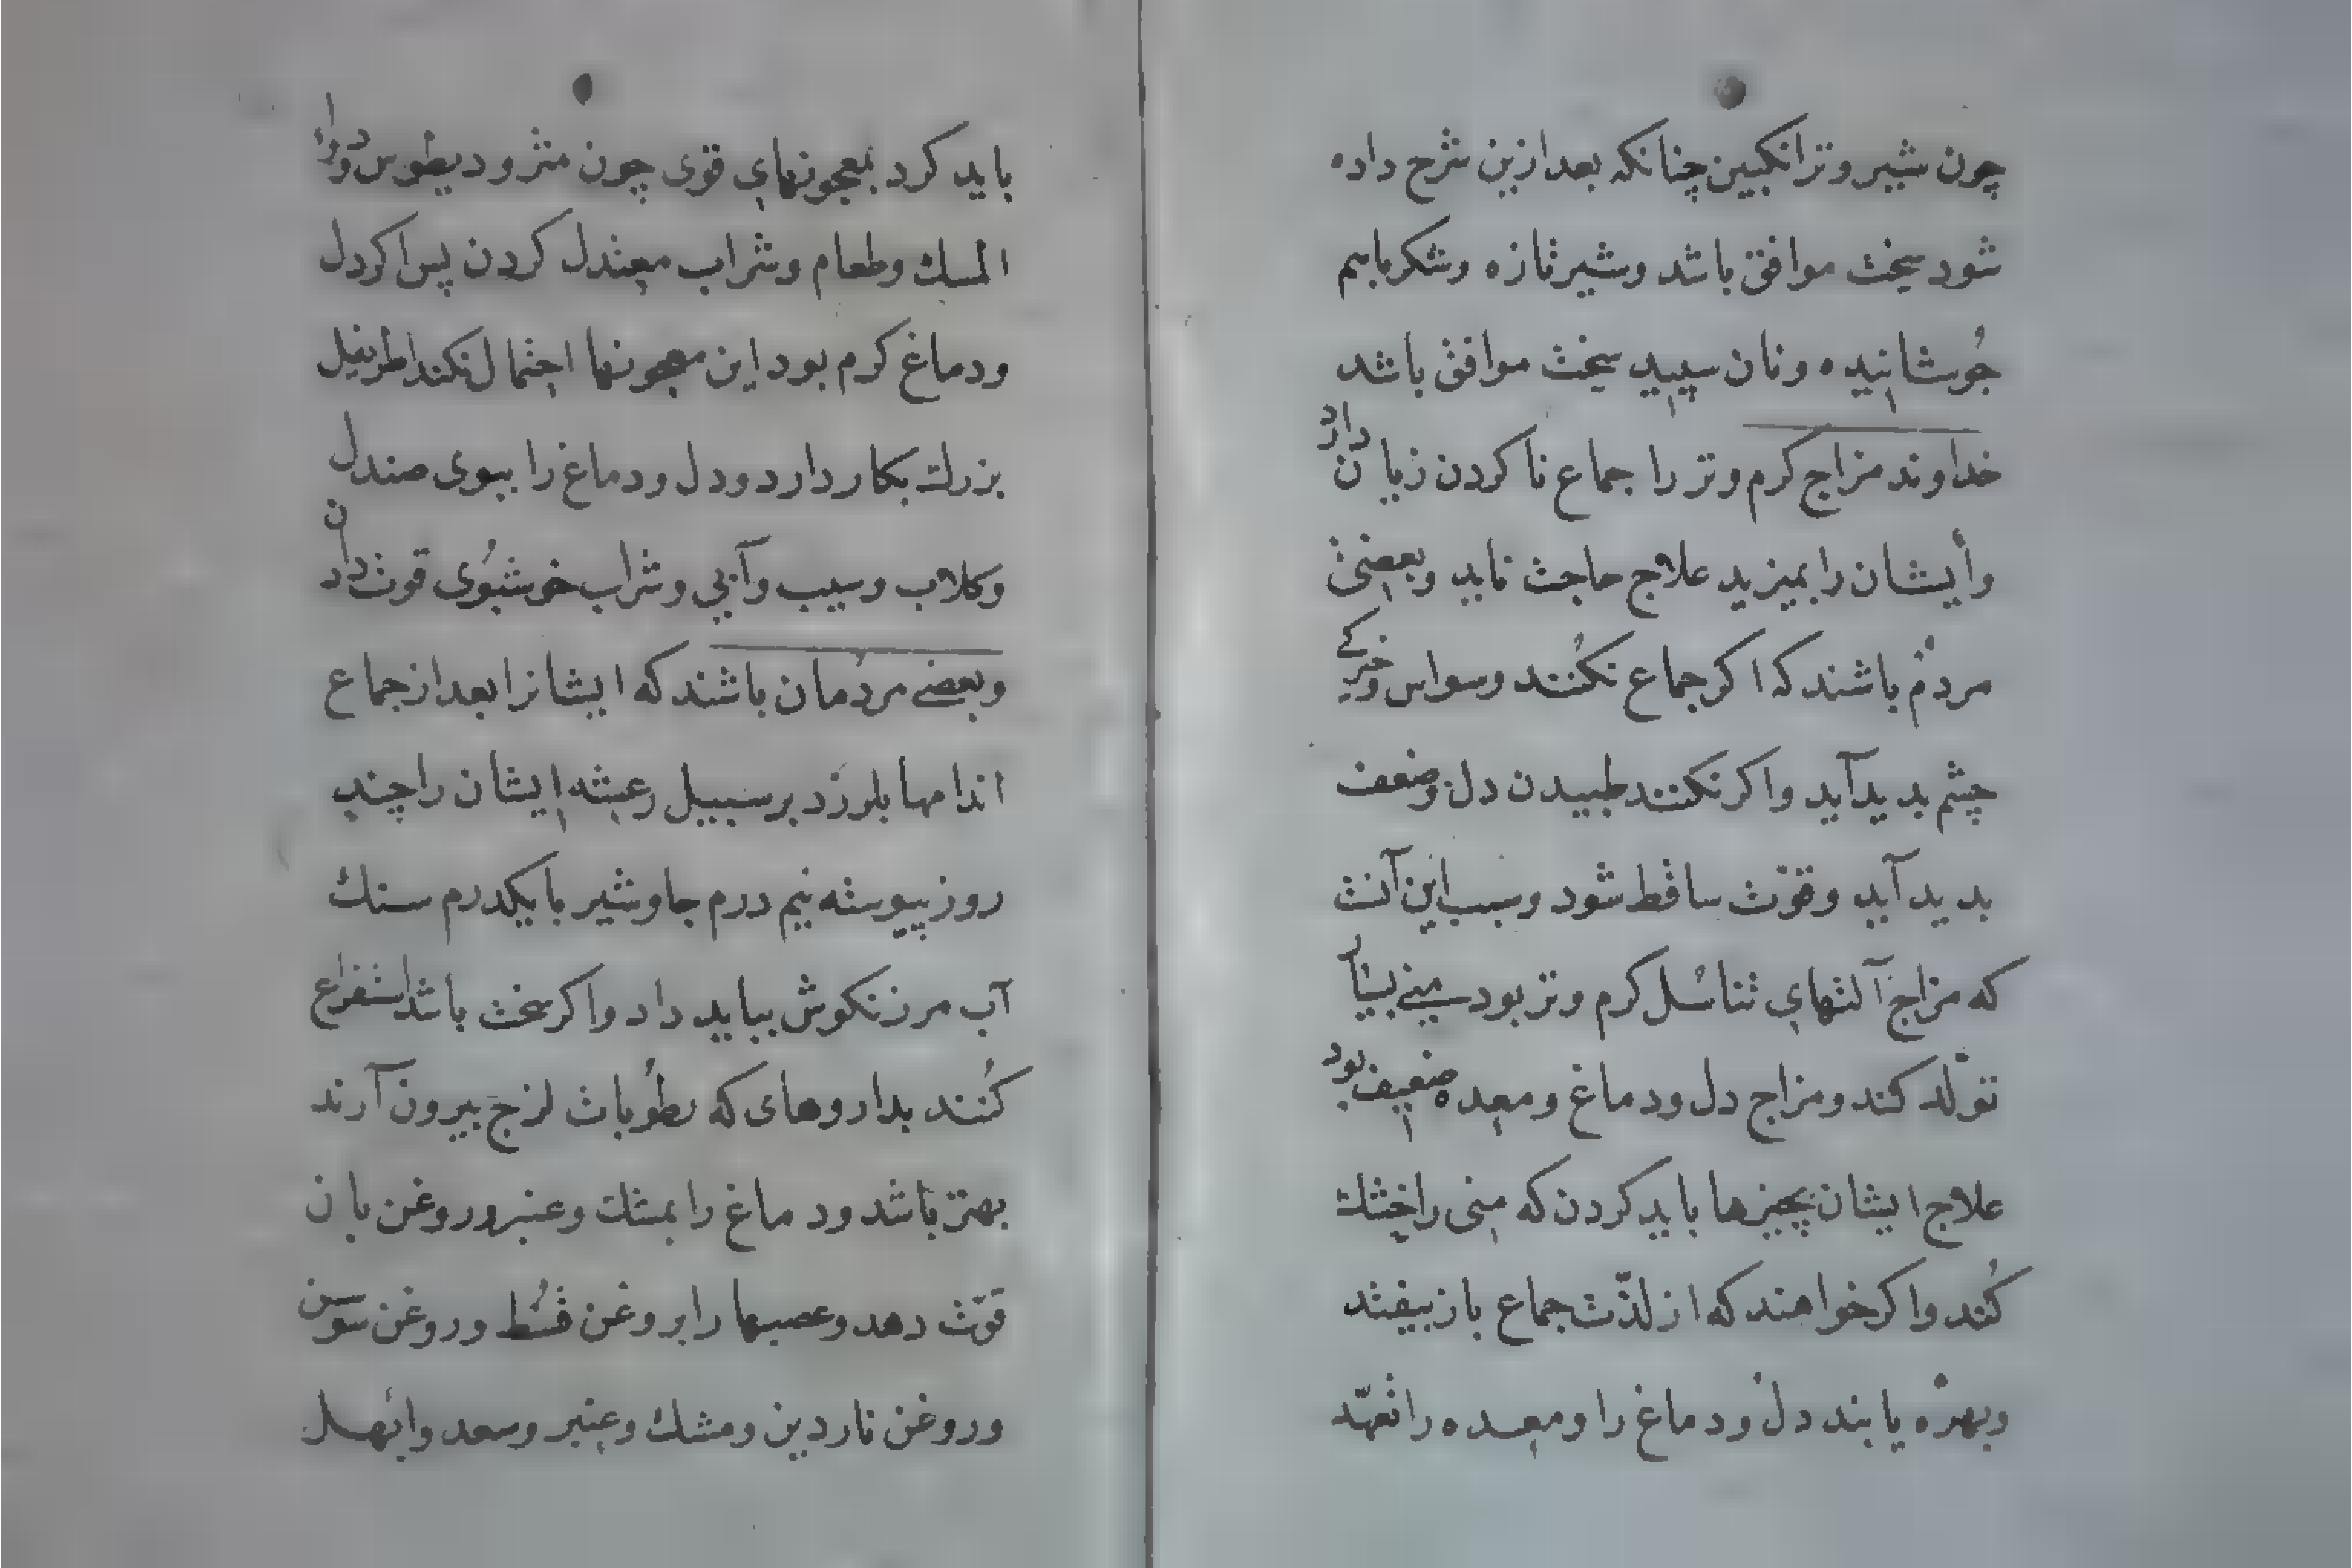 چون شیر و ترانکبین چنانکه بعد ازین شرح داده
شود سخت موافق باشد و شیر تازه و شکر باهم
جُوشانیده و نان سپید سخت موافق باشد
خداوند مزاج کرم و تر را جماع نا کردن زیان دارد
وأیشان را بمیزید علاج حاجت ناید و بعضی
مردم باشند که اکر جماع نکُنند وسواس و تیرکی
چشم بدید آید و اکر نکنند طبیدن دل و ضعف
بدید آید و قوّت ساقط شود و سبب این آنست
که مزاج آلتهای تناسُل کرم و تر بود منی بسیار
تولّد کند و مزاج دل و دماغ و معده ضعیف بود
علاج ایشان بچیزها باید کردن که منی را خشك
کُند و اکر خواهند که از لذّت جماع باز نیفتند
و بهره یابند دل و دماغ را و معده را تعهّد
باید کرد بمعجونهای قوی چون مثرودیطوس و دواء
المسك و طعام و شراب معتدل کردن پس اکر دل
و دماغ کرم بود این معجونها احتمال نکند اطریفل
بزرك بکار دارد و دل و دماغ را ببوی صندل
و کلاب و سیب و آبی و شراب خوشبُوی قوت دادن
و بعضے مردُمان باشند که ایشانرا بعد از جماع
اندامها بلرزَد بر سبیل رعشه ایشان را چند
روز پیوسته نیم درم جاوشیر با یکدرم سنك
آب مرزنکوش بباید داد و اکر سخت باشد استفراغ
کُنند بداروهای که رطُوبات لزج بیرون آرند
بهتر باشد و دماغ را بمشك و عنبر و روغن بان
قوّت دهد و عصبها را بروغن قُسط و روغن سوسن
و روغن ناردین و مشك و عنبر و سعد و ابهل